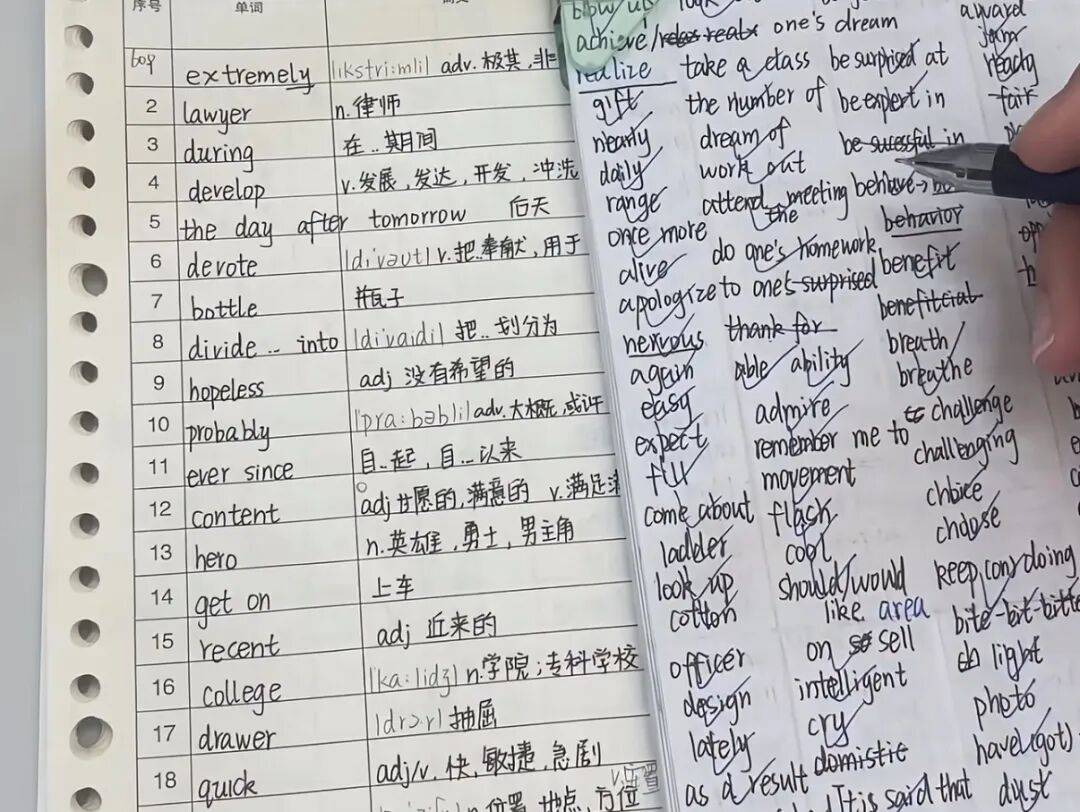 序号 单词
extremely |ikstri:mli| adv. 极其, 非
2 lawyer n. 律师
3 during 在..期间
4 develop v. 发展, 发达, 开发, 冲洗
5 the day after tomorrow 后天
6 devote |divəut| v. 把..奉献, 用于
7 bottle 瓶子
8 divide .. into |divaidi| 把.. 划分为
9 hopeless adj 没有希望的
10 probably |pra:bəbli| adv. 大概, 或许
11 ever since 自..起, 自...以来
12 content adj 甘愿的, 满意的 v. 满足
13 hero n. 英雄, 勇士, 男主角
14 get on 上车
15 recent adj 近来的
16 college |ka:lidʒ| n. 学院; 专科学校
17 drawer |drɔ:r| 抽屉
18 quick adj/v. 快, 敏捷, 急剧
位置 地点, 方位
achieve/ one's dream award
realize take a class be surprised at jam
gift the number of be expert in ready
nearly dream of be sucessful in fair
daily work out
range attend the meeting behave→
once more behavior
alive do one's homework benefit
apologize to one's surprised beneficial
nervous thank for breath
again able ability breathe
easy admire challenge
expect remember me to challenging
fill movement choice
come about flash choose
ladder cool keep (on) doing
look up should/would bite-bit-bitte
cotton like area
officer on sell light
design intelligent photo
lately cry have(got)
as a result domistic dust
It is said that